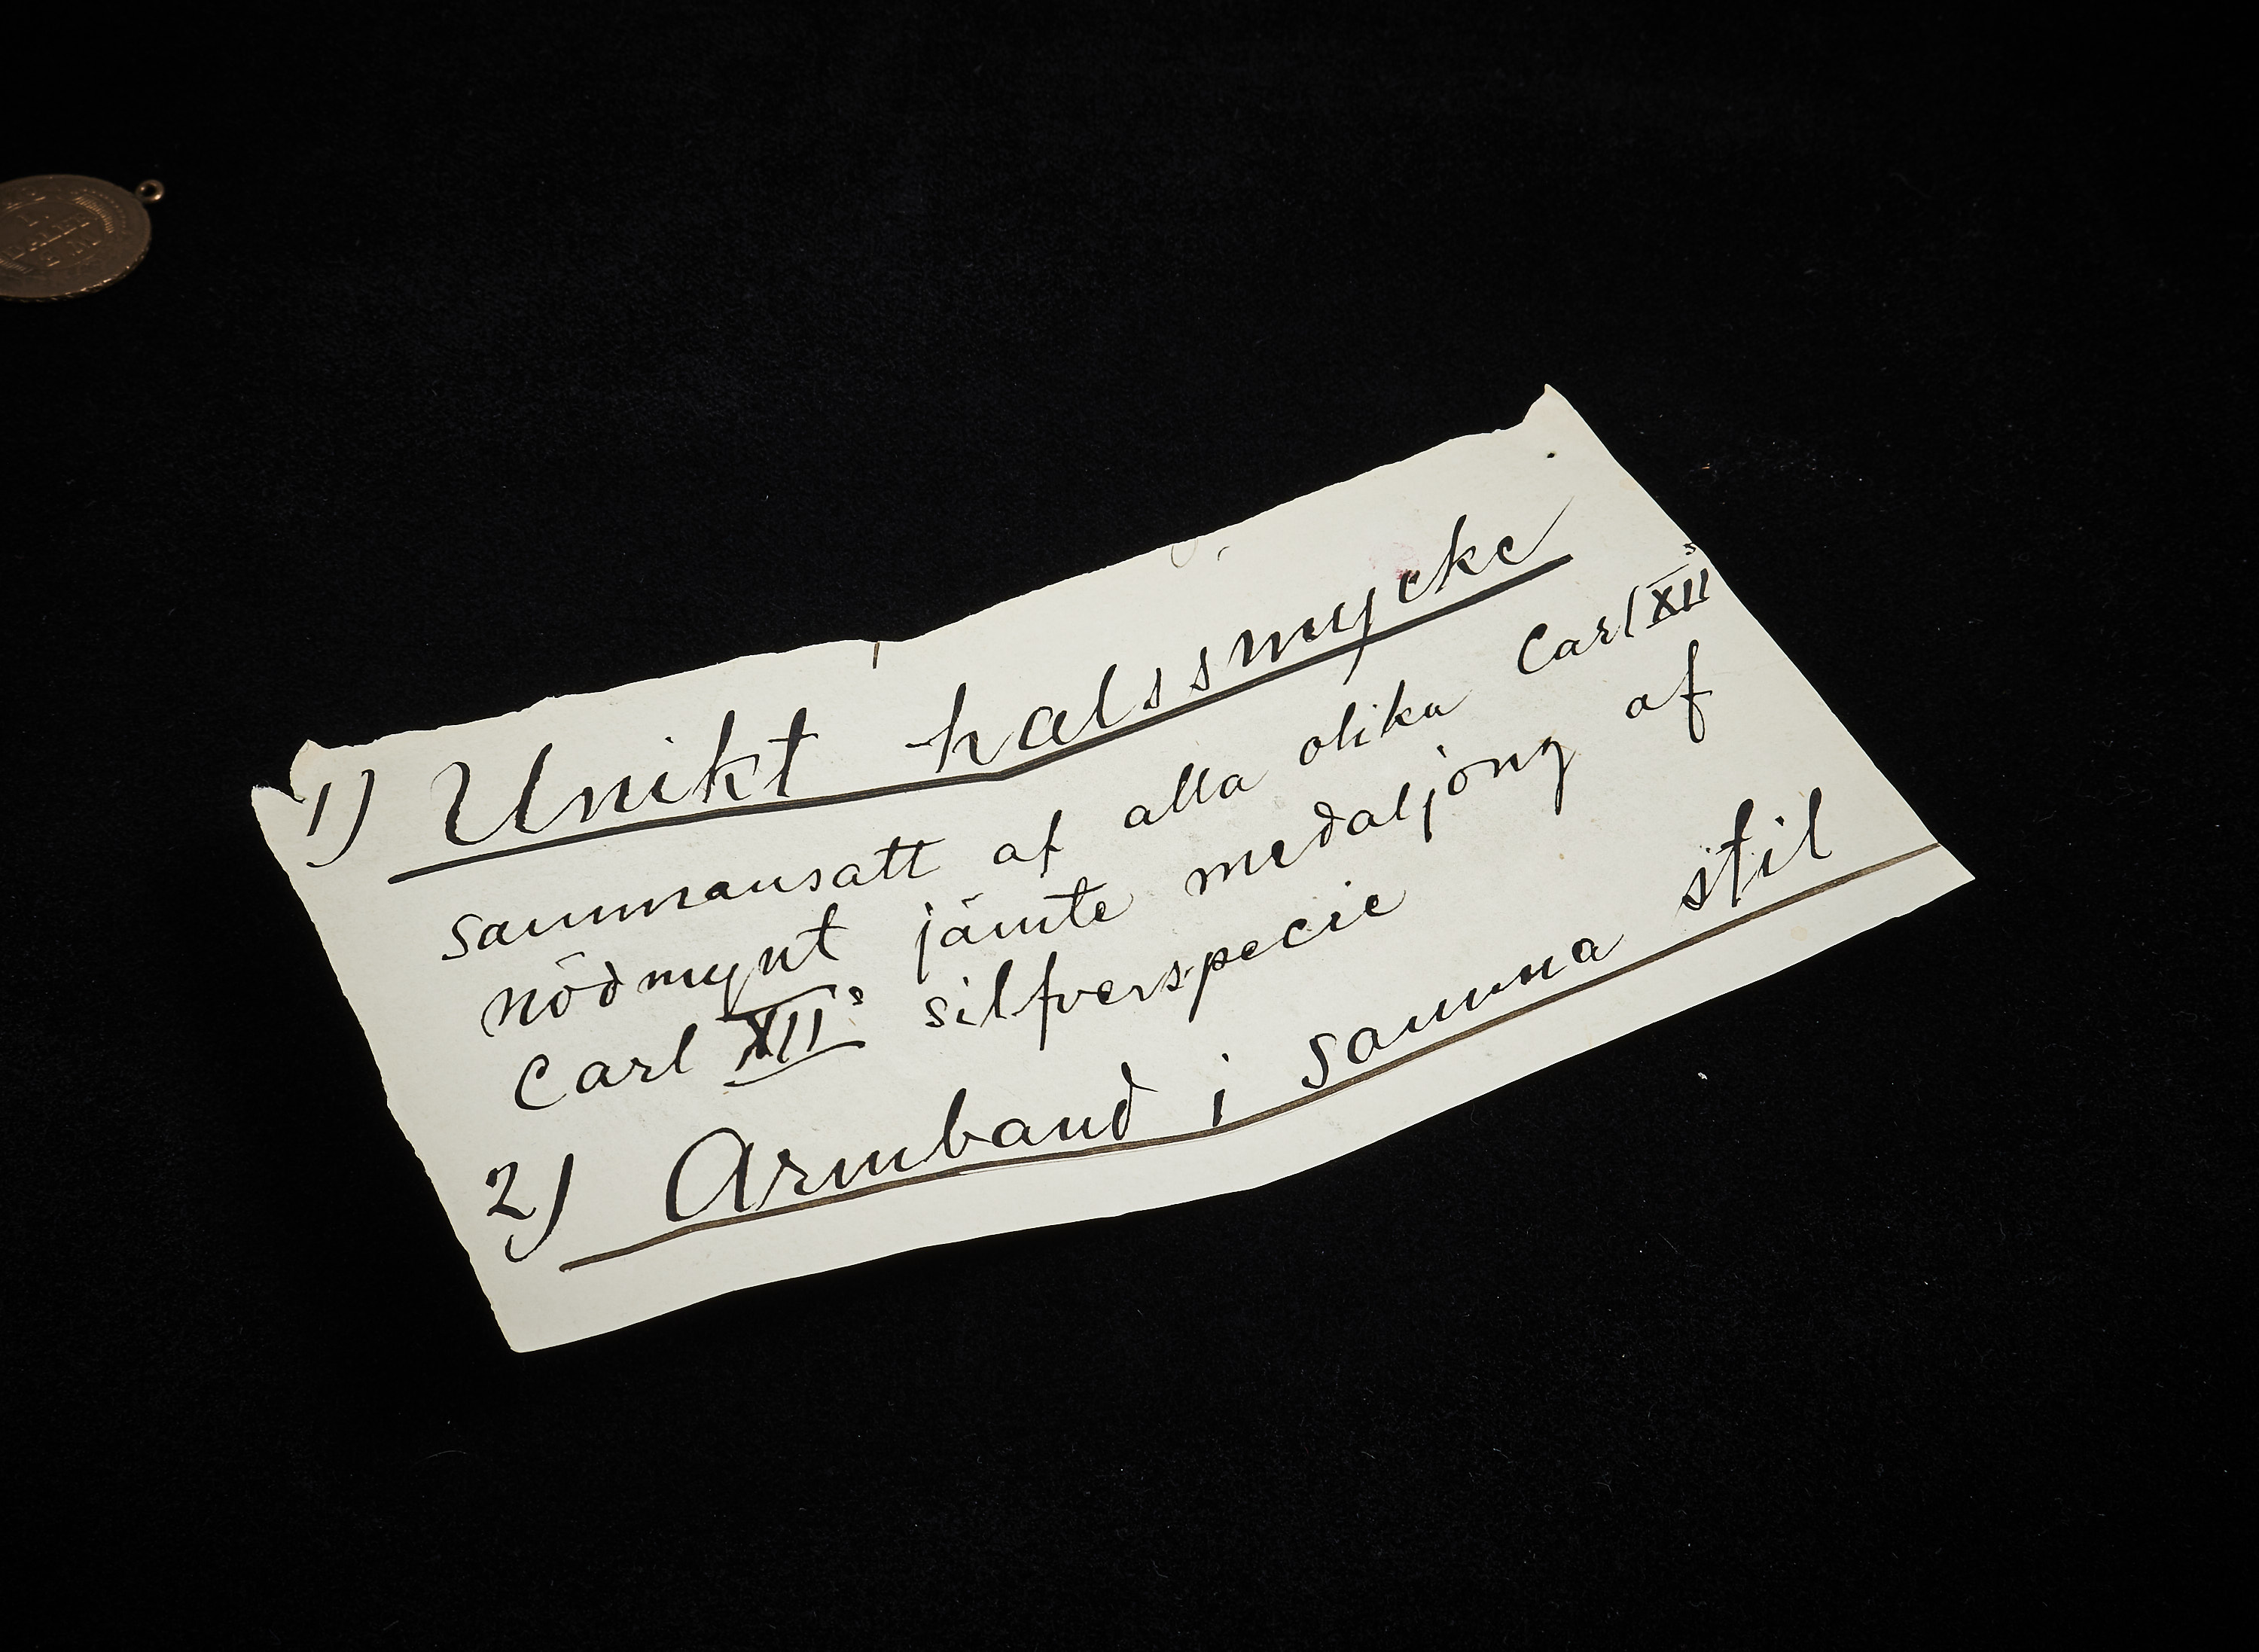 1) Unikt halssmycke
sammansatt af alla olika Carl XII s
nödmynt jämte medaljong af
Carl XII s silfverspecie
2) Armband i samma stil